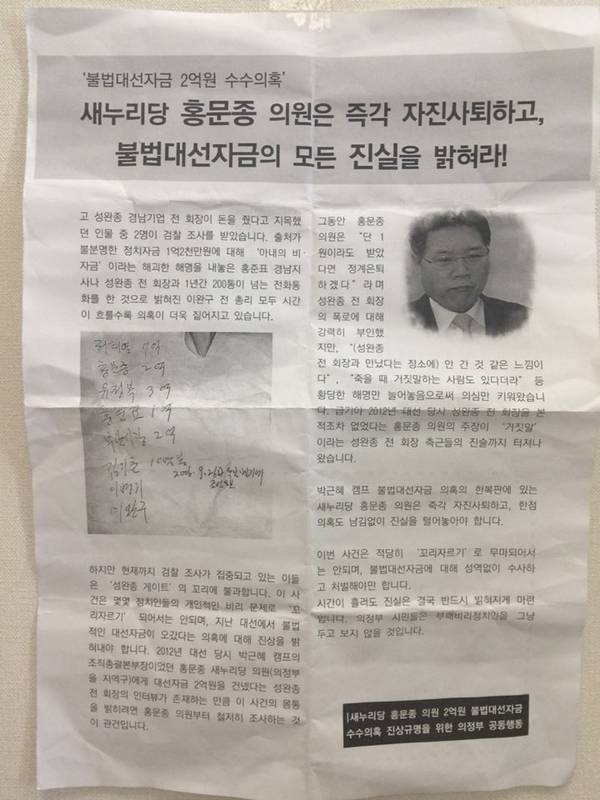 '불법대선자금 2억원 수수의혹'
새누리당 홍문종 의원은 즉각 자진사퇴하고,
불법대선자금의 모든 진실을 밝혀라!
고 성완종 경남기업 전 회장이 돈을 줬다고 지목했
던 인물 중 2명이 검찰 조사를 받았습니다. 출처가
불분명한 정치자금 1억2천만원에 대해 '아내의 비
자금' 이라는 해괴한 해명을 내놓은 홍준표 경남지
사나 성완종 전 회장과 1년간 200통이 넘는 전화통
화를 한 것으로 밝혀진 이완구 전 총리 모두 시간
이 흐를수록 의혹이 더욱 짙어지고 있습니다.
허태열 7억
홍문종 2억
유정복 3억
홍준표 1억
부산시장 2억
김기춘 10만불
2006. 9. 26日
이병기
이완구
하지만 현재까지 검찰 조사가 집중되고 있는 이들
은 '성완종 게이트' 의 꼬리에 불과합니다. 이 사
건은 몇몇 정치인들의 개인적인 비리 문제로 '꼬
리자르기' 되어서는 안되며, 지난 대선에서 불법
적인 대선자금이 오갔다는 의혹에 대해 진상을 밝
혀내야 합니다. 2012년 대선 당시 박근혜 캠프의
조직총괄본부장이었던 홍문종 새누리당 의원(의정부
을 지역구)에게 대선자금 2억원을 건넸다는 성완종
전 회장의 인터뷰가 존재하는 만큼 이 사건의 몸통
을 밝히려면 홍문종 의원부터 철저히 조사하는 것
이 관건입니다.
그동안 홍문종
의원은 "단 1
원이라도 받았
다면 정계은퇴
하겠다" 라며
성완종 전 회장
의 폭로에 대해
강력히 부인했
지만, "(성완종
전 회장과 만났다는 장소에) 안 간 것 같은 느낌이
다", "죽을 때 거짓말하는 사람도 있다더라" 등
황당한 해명만 늘어놓음으로써 의심만 키워왔습니
다. 급기야 2012년 대선 당시 성완종 전 회장을 본
적조차 없었다는 홍문종 의원의 주장이 '거짓말'
이라는 성완종 전 회장 측근들의 진술까지 터져나
왔습니다.
박근혜 캠프 불법대선자금 의혹의 한복판에 있는
새누리당 홍문종 의원은 즉각 자진사퇴하고, 한점
의혹도 남김없이 진실을 털어놓아야 합니다.
이번 사건은 적당히 '꼬리자르기' 로 무마되어서
는 안되며, 불법대선자금에 대해 성역없이 수사하
고 처벌해야만 합니다.
시간이 흘러도 진실은 결국 반드시 밝혀지게 마련
입니다. 의정부 시민들은 부패비리정치인을 그냥
두고 보지 않을 것입니다.
|새누리당 홍문종 의원 2억원 불법대선자금
수수의혹 진상규명을 위한 의정부 공동행동